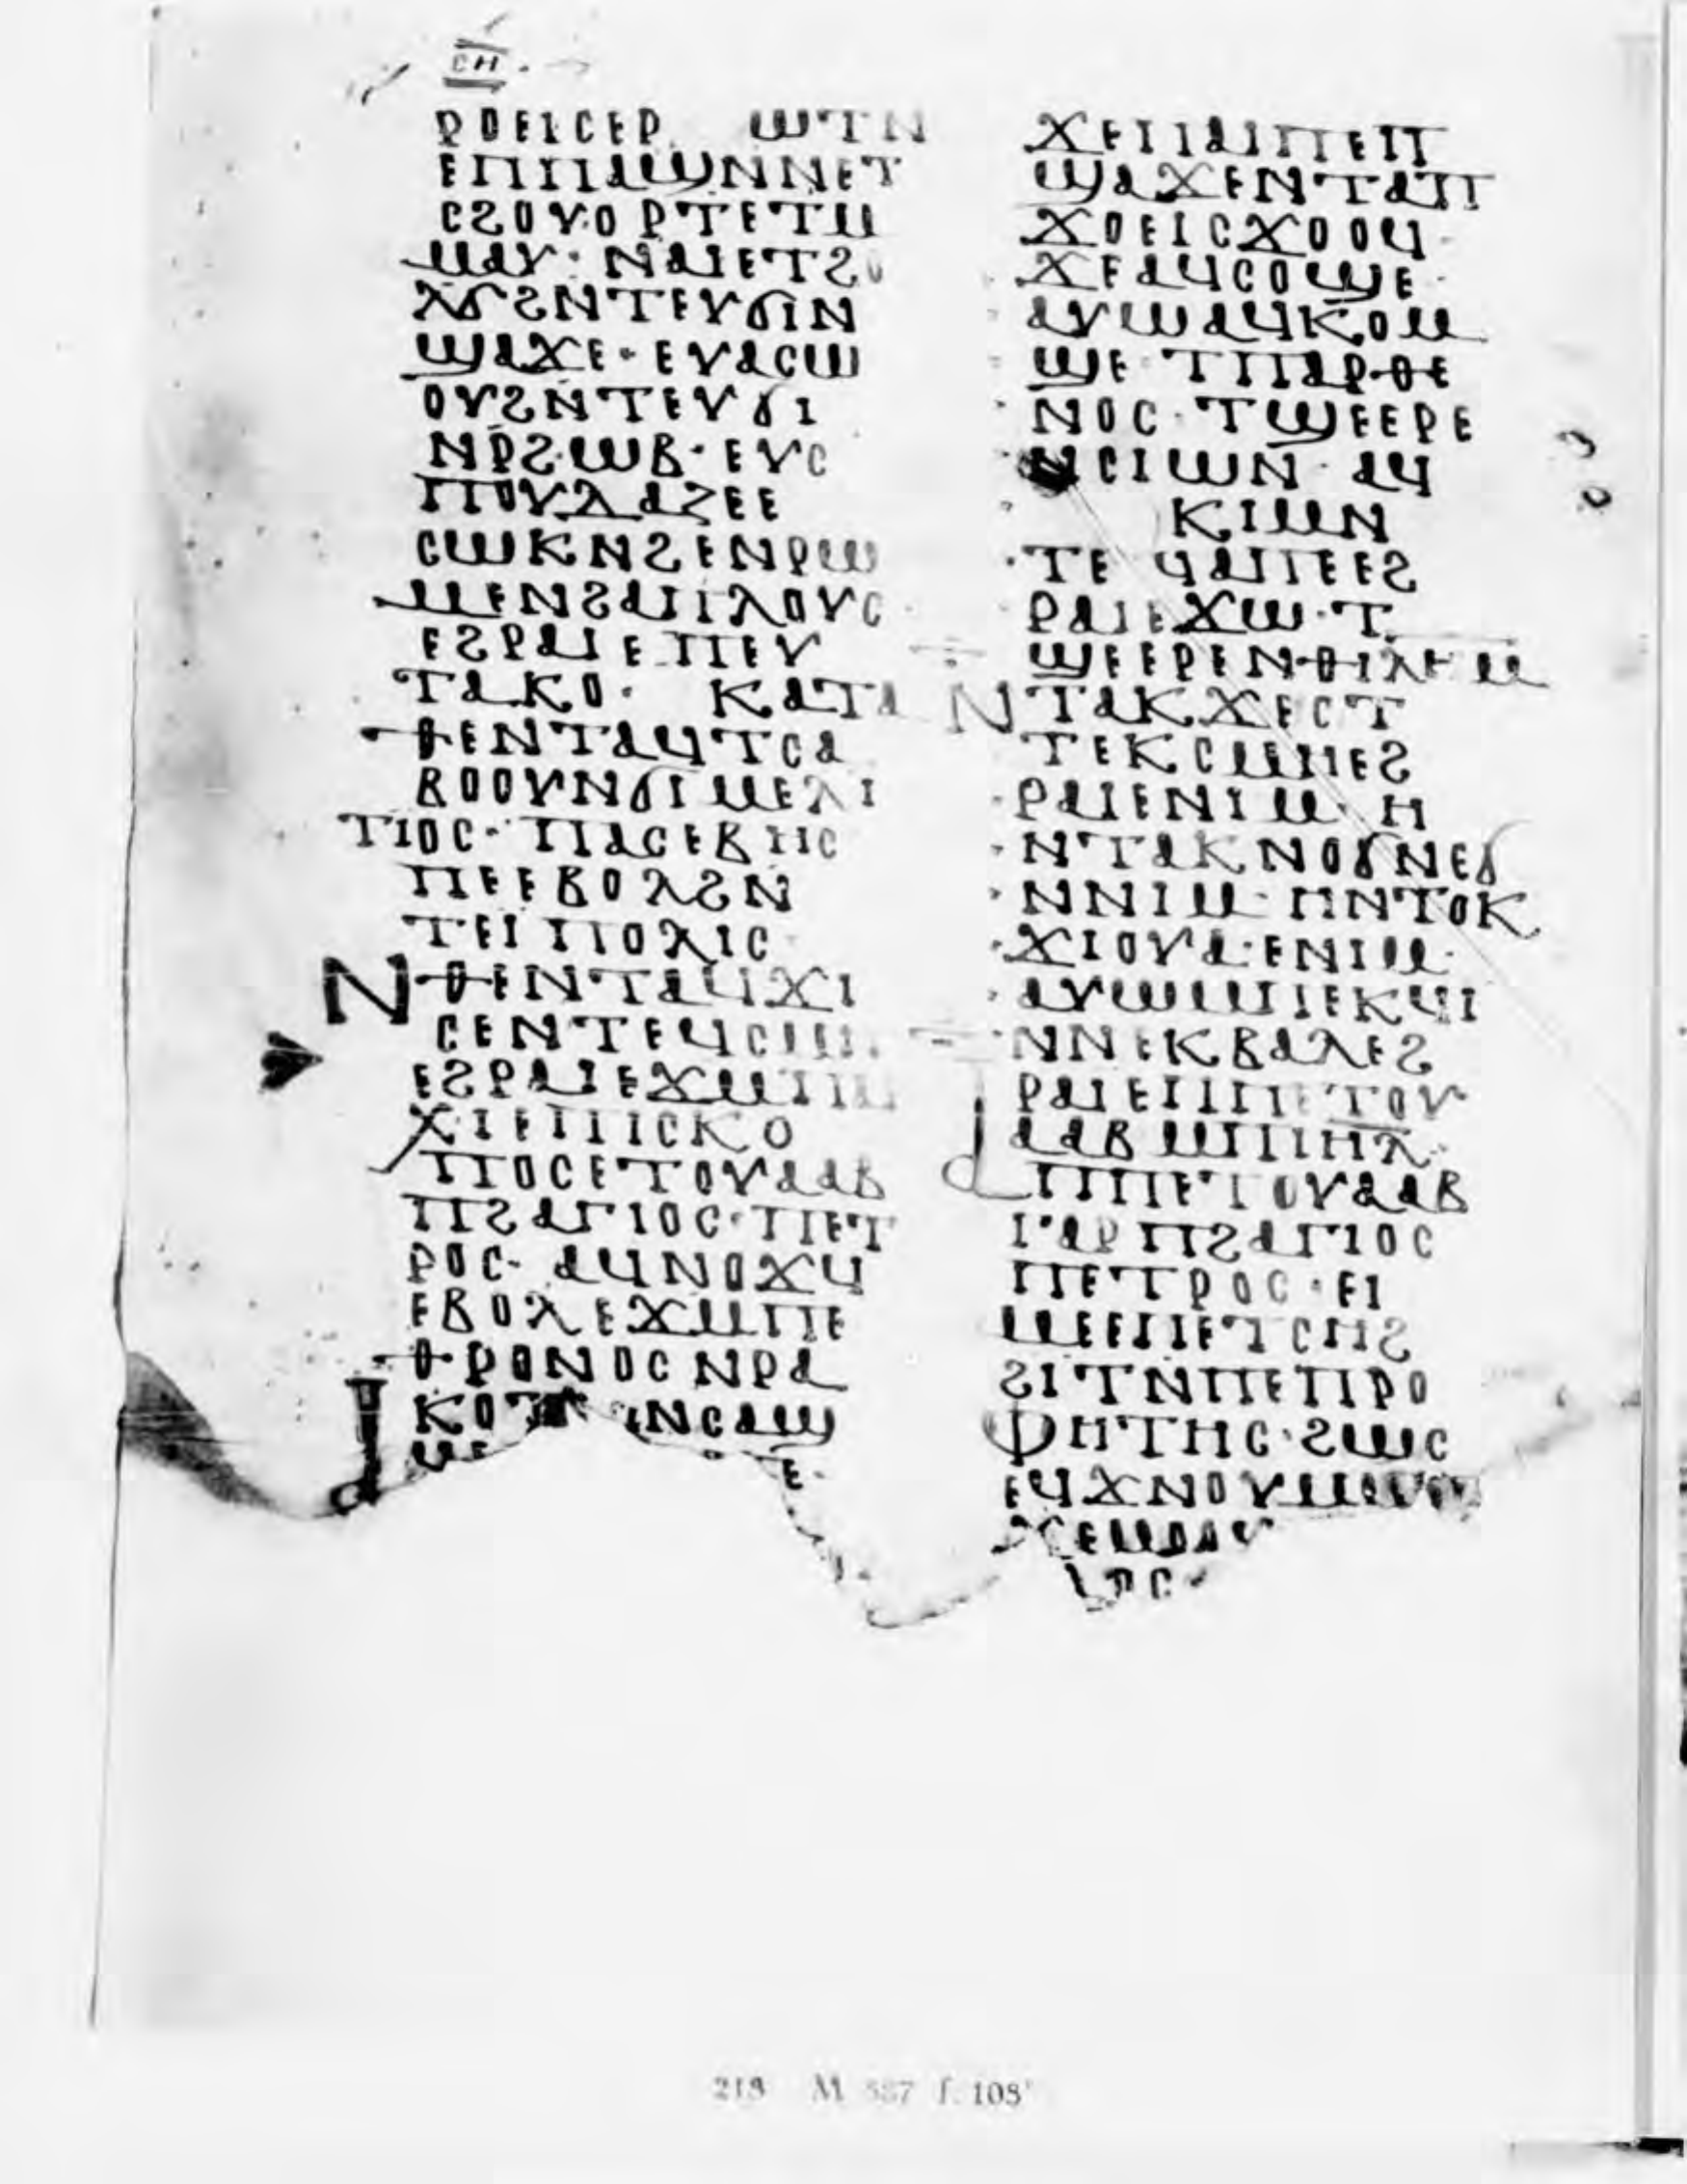 ⲥⲏ
ⲣⲟⲉⲓⲥⲉⲣ ⲱⲧⲛ
ⲉⲡⲡⲁϣⲛⲛⲉⲧ
ⲥϩⲟⲩⲟⲣⲧⲉⲧⲙ
ⲙⲁⲩ· ⲛⲁⲓⲉⲧϩⲟ
ⲗϭϩⲛⲧⲉⲩϭⲓⲛ
ϣⲁϫⲉ· ⲉⲩⲁⲥⲱ
ⲟⲩϩⲛⲧⲉⲩϭⲓ
ⲛⲣϩⲱⲃ· ⲉⲩⲥ
ⲡⲟⲩⲗⲁⲍⲉⲉ
ⲥⲱⲕⲛϩⲉⲛⲣⲱ
ⲙⲉⲛϩⲁⲡⲗⲟⲩⲥ
ⲉϩⲣⲁⲓⲉⲡⲉⲩ
ⲧⲁⲕⲟ· ⲕⲁⲧⲁ
ⲑⲉⲛⲧⲁϥⲧⲥⲁ
ⲃⲟⲟⲩⲛϭⲓⲙⲉⲗⲓ
ⲧⲓⲟⲥ· ⲡⲁⲥⲉⲃⲏⲥ
ⲡⲉⲉⲃⲟⲗϩⲛ
ⲧⲉⲓⲡⲟⲗⲓⲥ
ⲛⲑⲉⲛⲧⲁϥϫⲓ
ⲥⲉⲛⲧⲉϥⲥⲙⲏ
ⲉϩⲣⲁⲓⲉϫⲙⲡⲁ
ⲭⲓⲉⲡⲓⲥⲕⲟ
ⲡⲟⲥⲉⲧⲟⲩⲁⲁⲃ
ⲡϩⲁⲅⲓⲟⲥ· ⲡⲉⲧ
ⲣⲟⲥ· ⲁϥⲛⲟϫϥ
ⲉⲃⲟⲗⲉϫⲙⲡⲉ
ⲑⲣⲟⲛⲟⲥⲛⲣⲁ
ⲕⲟⲧⲛⲥⲁϣ
ϫⲉⲡⲁⲡⲉⲡ
ϣⲁϫⲉⲛⲧⲁⲡ
ϫⲟⲉⲓⲥϫⲟⲟϥ·
ϫⲉⲁϥⲥⲟϣⲉ·
ⲁⲩⲱⲁϥⲕⲟⲙ
ϣⲉ ⲧⲡⲁⲣⲑⲉ
ⲛⲟⲥ· ⲧϣⲉⲉⲣⲉ
ⲛⲥⲓⲱⲛ· ⲁϥ
ⲕⲓⲙⲛ
ⲧⲉ ϥⲁⲡⲉⲉϩ
ⲣⲁⲓⲉϫⲱ· ⲧ
ϣⲉⲉⲣⲉⲛⲑⲓⲗⲏⲙ
ⲛⲧⲁⲕϫⲉⲥⲧ
ⲧⲉⲕⲥⲙⲏⲉϩ
ⲣⲁⲓⲉⲛⲓⲙ· ⲏ
ⲛⲧⲁⲕⲛⲟϭⲛⲉϭ
ⲛⲛⲓⲙ· ⲏⲛⲧⲟⲕ
ϫⲓⲟⲩⲁ· ⲉⲛⲓⲙ·
ⲁⲩⲱⲙⲡⲉⲕϥⲓ
ⲛⲛⲉⲕⲃⲁⲗⲉϩ
ⲣⲁⲓⲉⲡⲡⲉⲧⲟⲩ
ⲁⲁⲃⲙⲡⲓⲏⲗ·
ⲁⲡⲡⲉⲧⲟⲩⲁⲁⲃ
ⲅⲁⲣⲡϩⲁⲅⲓⲟⲥ
ⲡⲉⲧⲣⲟⲥ· ⲉⲓ
ⲙⲉⲉⲡⲉⲧⲥⲏϩ
ϩⲓⲧⲛⲡⲉⲡⲣⲟ
ⲫⲏⲧⲏⲥ· ϩⲱⲥ
ⲉϥϫⲛⲟⲩⲙ